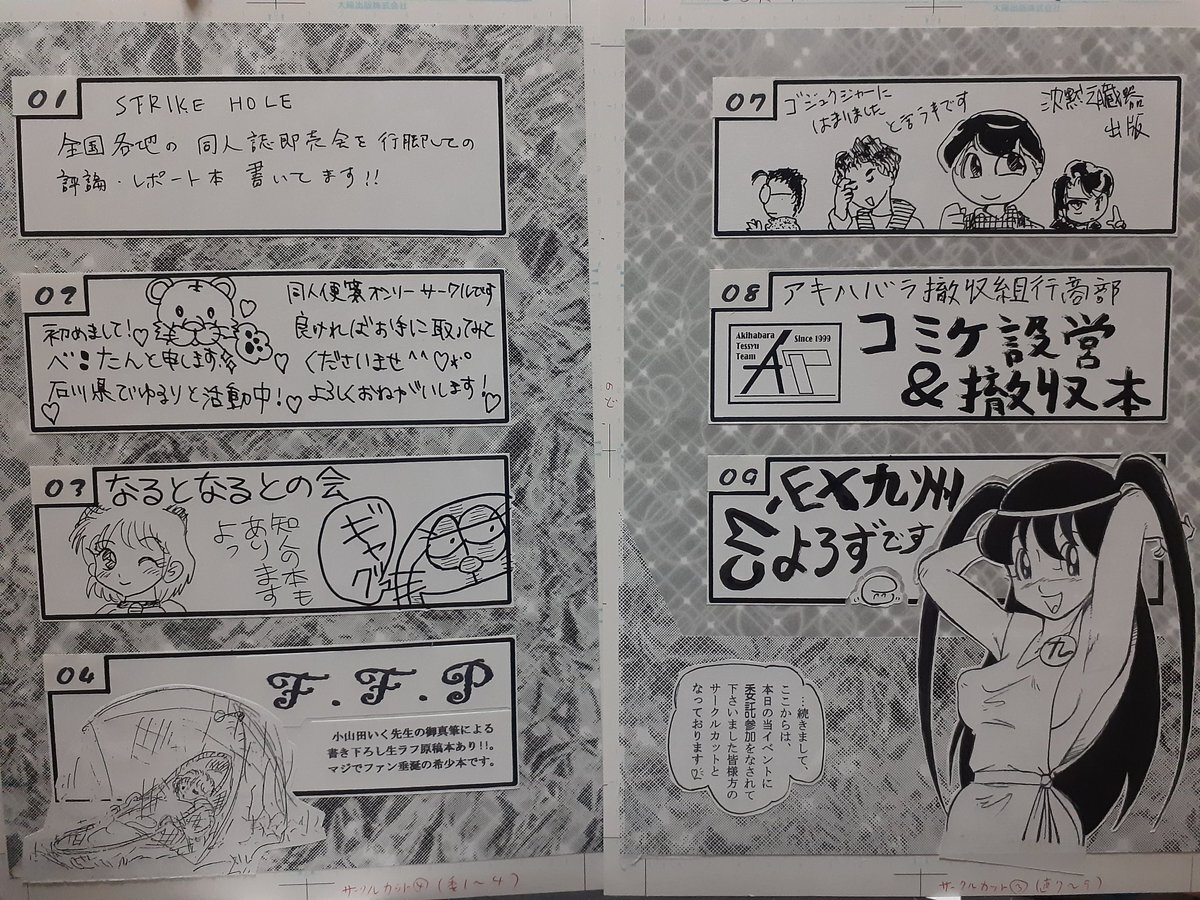 01
STRIKE HOLE
全国各地の同人誌即売会を行脚しての
評論・レポート本 書いてます!!
02
同人便箋オンリーサークルです
初めまして!♡
良ければお手に取ってみて
べ!たんと申します
くださいませ^^♡
石川県でゆるりと活動中!♡
よろしくおねがいします!♡
03
なるとなるとの会
知人の本も
あります
よっ
ギャグ
04
F.F.P
小山田いく先生の御真筆による
書き下ろし生ラフ原稿本あり!!。
マジでファン垂涎の希少本です。
サークルカット④(委1〜4)
のど
07
ゴジュウジャーに
はまりました
と言うラキです
沈黙之臓器
出版
08
アキハバラ撤収組行商部
Akihabara
Tessyu
Team
Since 1999
AT
コミケ設営
&撤収本
09
EX九州
よろずです
九
…続きまして、
ここからは、
本日の当イベントに
委託参加をなされて
下さいました皆様方の
サークルカットと
なっております♡
サークルカット③(直7〜9)